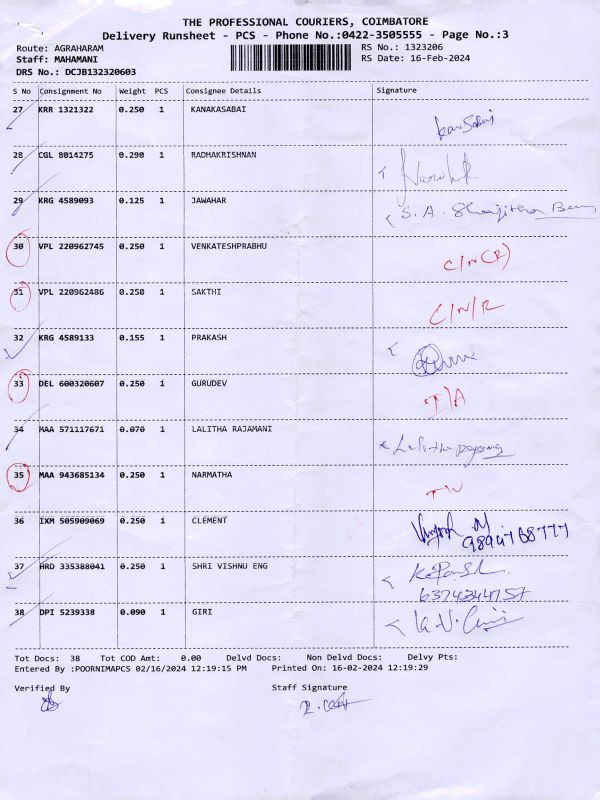 THE PROFESSIONAL COURIERS, COIMBATORE
Delivery Runsheet - PCS - Phone No.:0422-3505555 - Page No.:3
Route: AGRAHARAM RS No.: 1323206
Staff: MAHAMANI RS Date: 16-Feb-2024
DRS No.: DCJB132320603
S No Consignment No Weight PCS Consignee Details Signature
27 KRR 1321322 0.250 1 KANAKASABAI
28 CGL 8014275 0.290 1 RADHAKRISHNAN
29 KRG 4589093 0.125 1 JAWAHAR S.A.
30 VPL 220962745 0.250 1 VENKATESHPRABHU C/N(R)
31 VPL 220962486 0.250 1 SAKTHI C/N/R
32 KRG 4589133 0.155 1 PRAKASH
33 DEL 600320607 0.250 1 GURUDEV I/A
34 MAA 571117671 0.070 1 LALITHA RAJAMANI Lalitha
35 MAA 943685134 0.250 1 NARMATHA
36 IXM 505909069 0.250 1 CLEMENT
37 HRD 335388041 0.250 1 SHRI VISHNU ENG
38 DPI 5239338 0.090 1 GIRI
Tot Docs: 38 Tot COD Amt: 0.00 Delvd Docs: Non Delvd Docs: Delvy Pts:
Entered By :POORNIMAPCS 02/16/2024 12:19:15 PM Printed On: 16-02-2024 12:19:29
Verified By Staff Signature